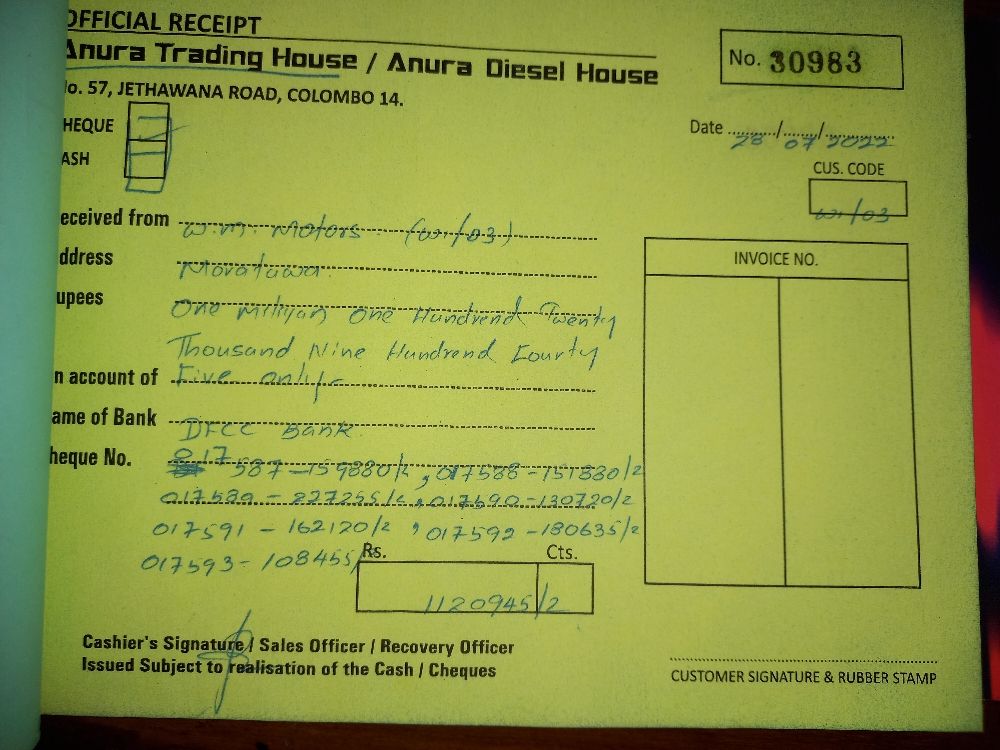 OFFICIAL RECEIPT
Anura Trading House / Anura Diesel House
No. 30983
No. 57, JETHAWANA ROAD, COLOMBO 14.
HEQUE
ASH
Date 28/07/2022
CUS. CODE
wi/03
eceived from W.M. Motors. (wi/03)
ddress Moratuwa.
upees One Millijan One Hundrend Twenty
Thousand Nine Hundrend Fourty
n account of Five only/-
ame of Bank DFCC Bank
heque No. 017587-159880/2, 017588-151880/2
017589-227255/2, 017590-130720/2
017591-162120/2, 017592-180635/2
017593-108455/
Rs. Cts.
1120945/2
INVOICE NO.
Cashier's Signature / Sales Officer / Recovery Officer
Issued Subject to realisation of the Cash / Cheques
CUSTOMER SIGNATURE & RUBBER STAMP